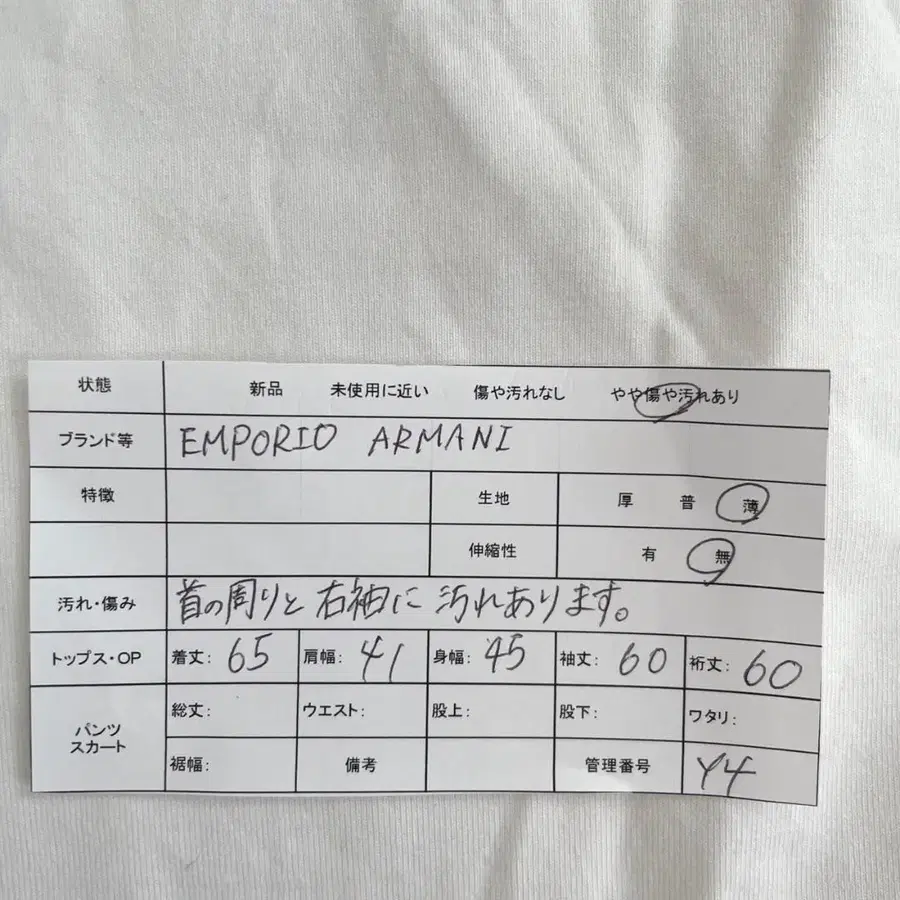 状態 新品 未使用に近い 傷や汚れなし やや傷や汚れあり
ブランド等 EMPORIO ARMANI
特徴 生地 厚 普 薄
伸縮性 有 無
汚れ・傷み 首の周りと右袖に汚れあります。
トップス・OP 着丈: 65 肩幅: 41 身幅: 45 袖丈: 60 裄丈: 60
パンツ スカート 総丈: ウエスト: 股上: 股下: ワタリ:
裾幅: 備考 管理番号 Y4